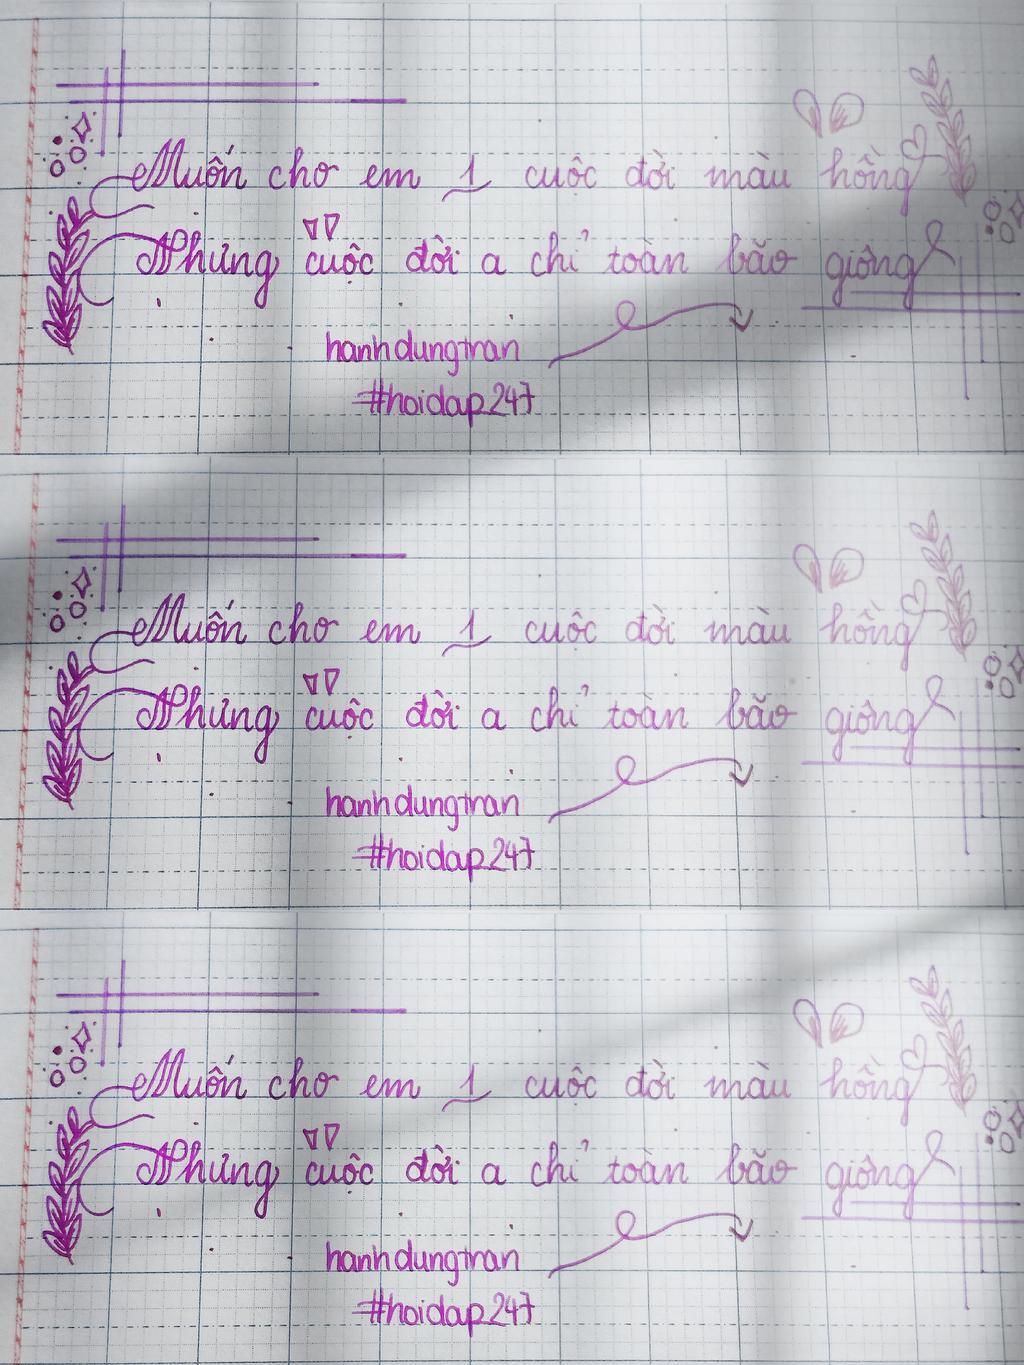 Muốn cho em 1 cuộc đời màu hồng
Nhưng cuộc đời a chỉ toàn bão giông
hanhdungtran
#hoidap247
Muốn cho em 1 cuộc đời màu hồng
Nhưng cuộc đời a chỉ toàn bão giông
hanhdungtran
#hoidap247
Muốn cho em 1 cuộc đời màu hồng
Nhưng cuộc đời a chỉ toàn bão giông
hanhdungtran
#hoidap247